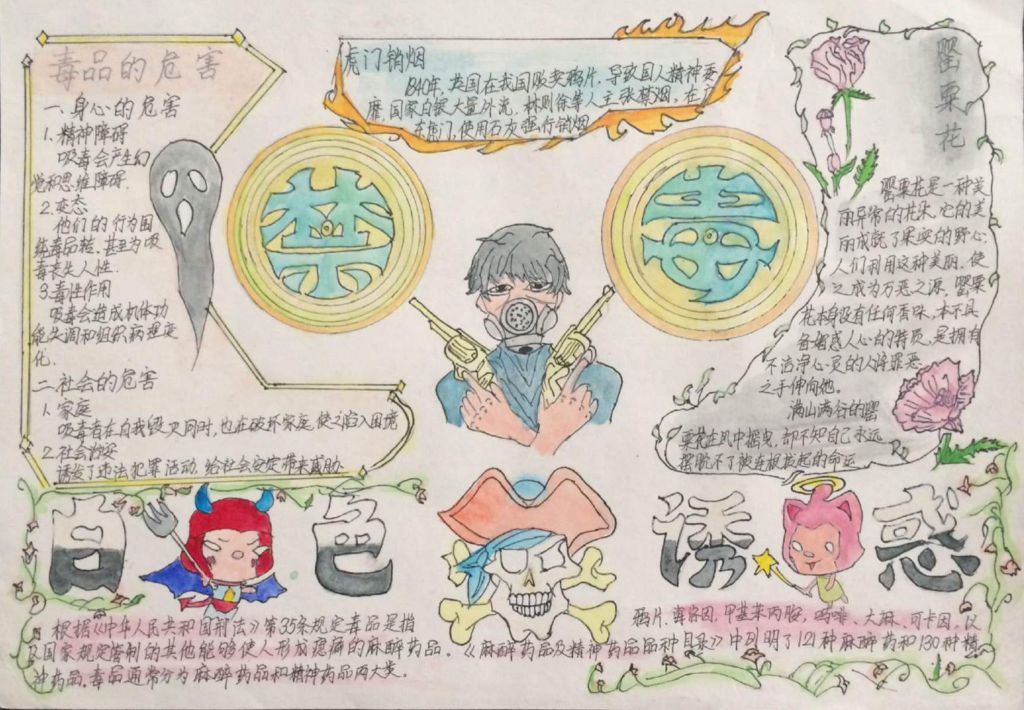 毒品的危害
一.身心的危害
1.精神障碍
吸毒会产生幻
觉和思维障碍.
2.变态
他们的行为围
绕毒品转,甚至为吸
毒丧失人性.
3.毒性作用
吸毒会造成机体功
能失调和组织病理变
化.
二.社会的危害
1.家庭
吸毒者在自我毁灭同时,也在破坏家庭,使之陷入困境
2.社会治安
诱发了违法犯罪活动,给社会安定带来威胁
虎门销烟
1840年,英国在我国贩卖鸦片,导致国人精神萎
靡,国家白银大量外流,林则徐等人主张禁烟,在广
东虎门,使用石灰强行销烟
禁
毒
罂粟花
罂粟花是一种美
丽异常的花朵,它的美
丽成就了果实的野心.
人们利用这种美丽,使
之成为万恶之源,罂粟
花本身没有任何香味,本不具
备媚惑人心的特质,是拥有
不洁净心灵的人将罪恶
之手伸向他.
满山满谷的罂
粟花在风中摇曳,却不知自己永远
摆脱不了被连根拔起的命运
白色诱惑
根据《中华人民共和国刑法》第35条规定毒品是指
鸦片、海洛因、甲基苯丙胺、吗啡、大麻、可卡因,以
及国家规定管制的其他能够使人形成瘾癖的麻醉药品.《麻醉药品及精神药品品种目录》中列明了121种麻醉药和130种精
神药品.毒品通常分为麻醉药品和精神药品两大类.